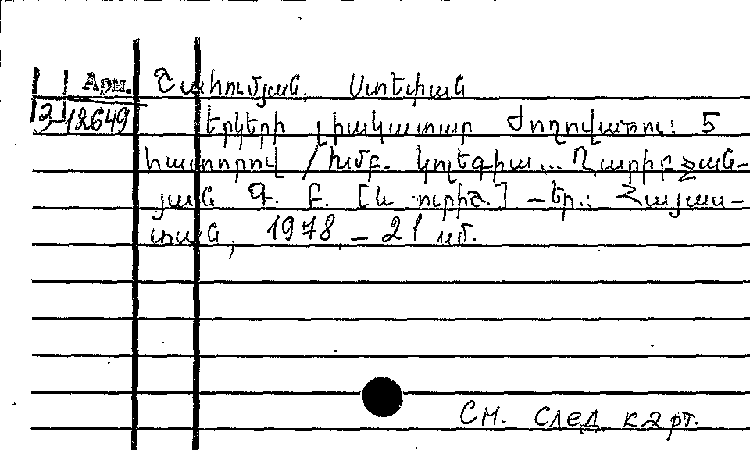 Арм. Շահումյան, Ստեփան
3 12649 Երկերի լիակատար ժողովածու: 5
հատորով / Խմբ. կոլեգիա... Ղարիբջան-
յան Գ. Բ. [և ուրիշ.] – Եր.: Հայաս-
տան, 1978. – 21 սմ.
См. след карт.